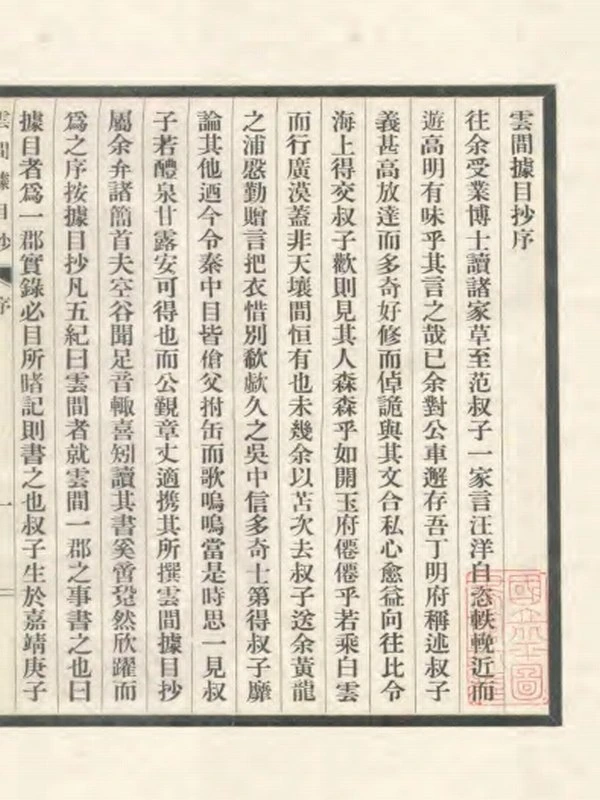 雲間據目抄序
往余受業博士讀諸家草至范叔子一家言汪洋自恣軼輓近而
遊高明有味乎其言之哉已余對公車邂存吾丁明府稱述叔子
義甚高放達而多奇好修而倬詭與其文合私心愈益向往比令
海上得交叔子歡則見其人森森乎如開玉府僊僊乎若乘白雲
而行廣漠蓋非天壤間恒有也未幾余以苫次去叔子送余黃龍
之浦慇勤贈言把衣惜別欷歔久之吳中信多奇士第得叔子靡
論其他迺今令秦中目皆傖父拊缶而歌嗚嗚當是時思一見叔
子若醴泉甘露安可得也而公覲章丈適携其所撰雲間據目抄
屬余弁諸簡首夫空谷聞足音輙喜矧讀其書奚啻跫然欣躍而
爲之序按據目抄凡五紀曰雲間者就雲間一郡之事書之也曰
據目者爲一郡實錄必目所睹記則書之也叔子生於嘉靖庚子
雲間據目抄 序 一